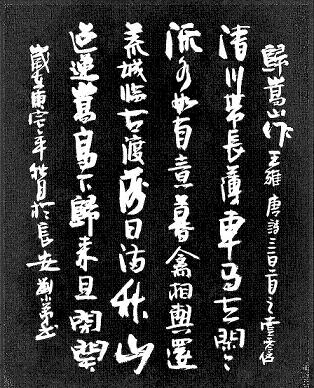 歸嵩山作 王維 唐詩三百首之壹
清川帶長薄車馬去閑々
流水如有意暮禽相與還
荒城临古渡落日滿秋山
迢遞嵩高下歸來且閉關
歲在庚寅年秋月於長安